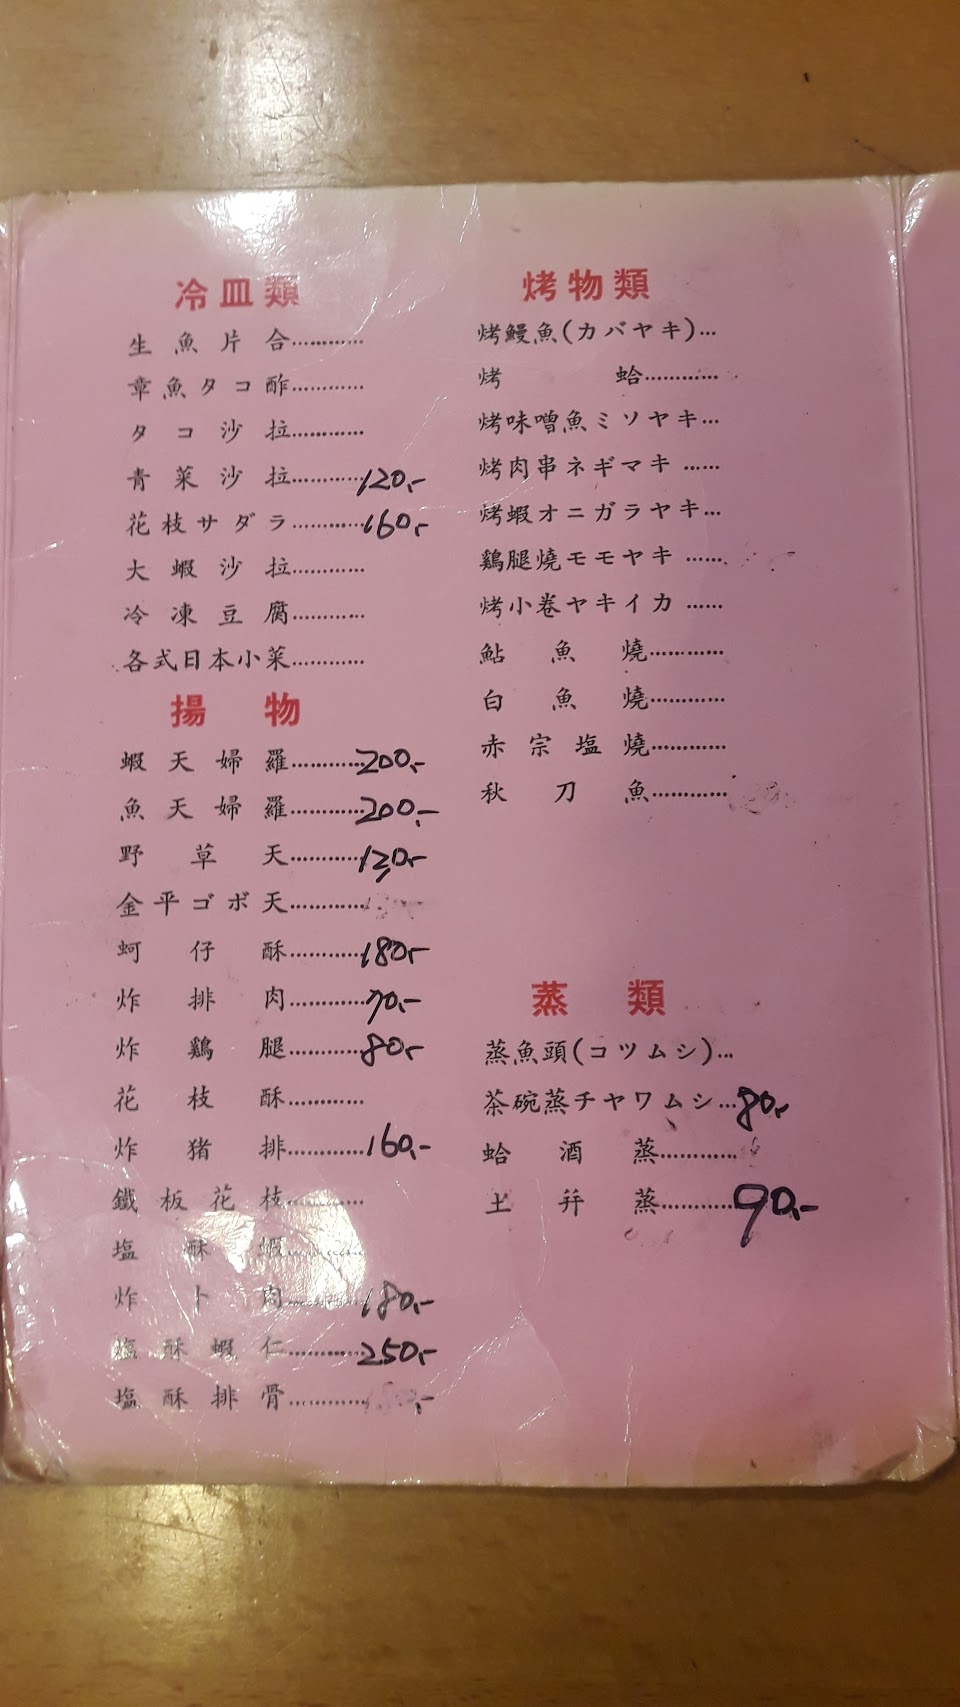 冷皿類
生魚片合…………
章魚タコ酢…………
タコ沙拉…………
青菜沙拉…………120.-
花枝サダラ…………160.-
大蝦沙拉…………
冷凍豆腐…………
各式日本小菜…………
揚物
蝦天婦羅…………200.-
魚天婦羅…………200.-
野草天…………120.-
金平ゴボ天…………
蚵仔酥…………180.-
炸排肉…………70.-
炸鷄腿…………80.-
花枝酥…………
炸猪排…………160.-
鐵板花枝…………
塩酥蝦…………
炸卜肉…………180.-
塩酥蝦仁…………250.-
塩酥排骨…………
烤物類
烤鰻魚(カバヤキ)…
烤蛤…………
烤味噌魚ミソヤキ…
烤肉串ネギマキ……
烤蝦オニガラヤキ…
鷄腿燒モモヤキ……
烤小卷ヤキイカ……
鮎魚燒…………
白魚燒…………
赤宗塩燒…………
秋刀魚…………
蒸類
蒸魚頭(コツムシ)…
茶碗蒸チヤワムシ…80.-
蛤酒蒸…………
土弁蒸…………90.-